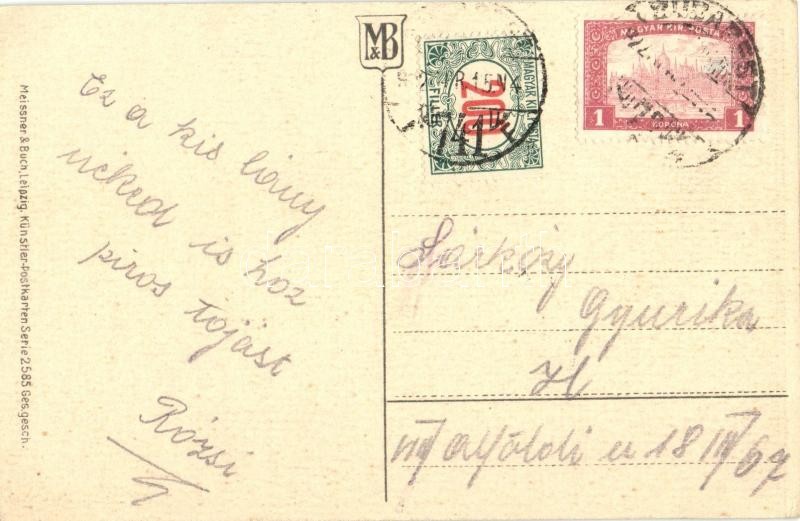 M&B
MAGYAR KIR. POSTA
200
FILLÉR
MAGYAR KIR. POSTA
1 KORONA 1
BUDAPEST
Ez a kis lány
neked is hoz
piros tojást
Rózsi
Meissner & Buch, Leipzig. Künstler-Postkarten Serie 2585 Ges. gesch.
Sárközy
Gyurika
VIII Alföldi u 18 III/67